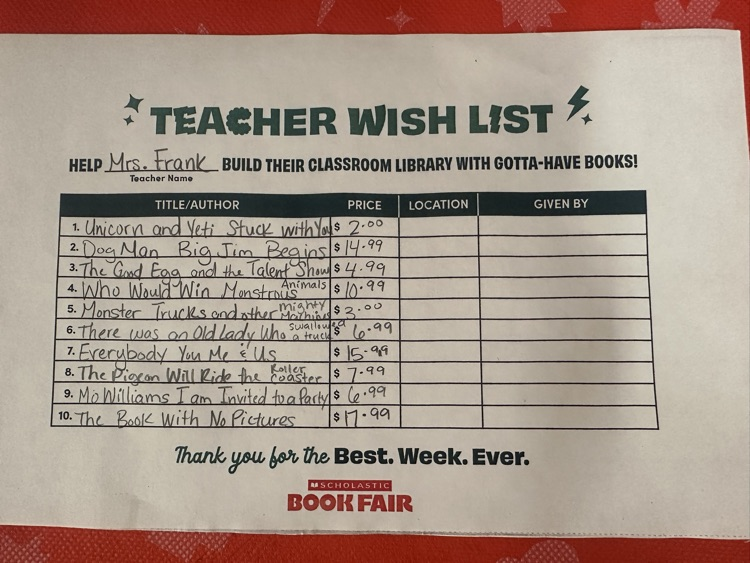 TEACHER WISH LIST
HELP Mrs. Frank BUILD THEIR CLASSROOM LIBRARY WITH GOTTA-HAVE BOOKS!
Teacher Name
TITLE/AUTHOR PRICE LOCATION GIVEN BY
1. Unicorn and Yeti Stuck with You $ 2.00
2. Dog Man Big Jim Begins $ 14.99
3. The Good Egg and the Talent Show $ 4.99
4. Who Would Win Monstrous Animals $ 10.99
5. Monster Trucks and other Mighty Machines $ 3.00
6. There was an Old Lady Who swallowed a truck $ 6.99
7. Everybody You Me & Us $ 15.99
8. The Pigeon Will Ride the Roller coaster $ 7.99
9. Mo Williams I am Invited to a Party $ 6.99
10. The Book With No Pictures $ 17.99
Thank you for the Best. Week. Ever.
SCHOLASTIC
BOOK FAIR